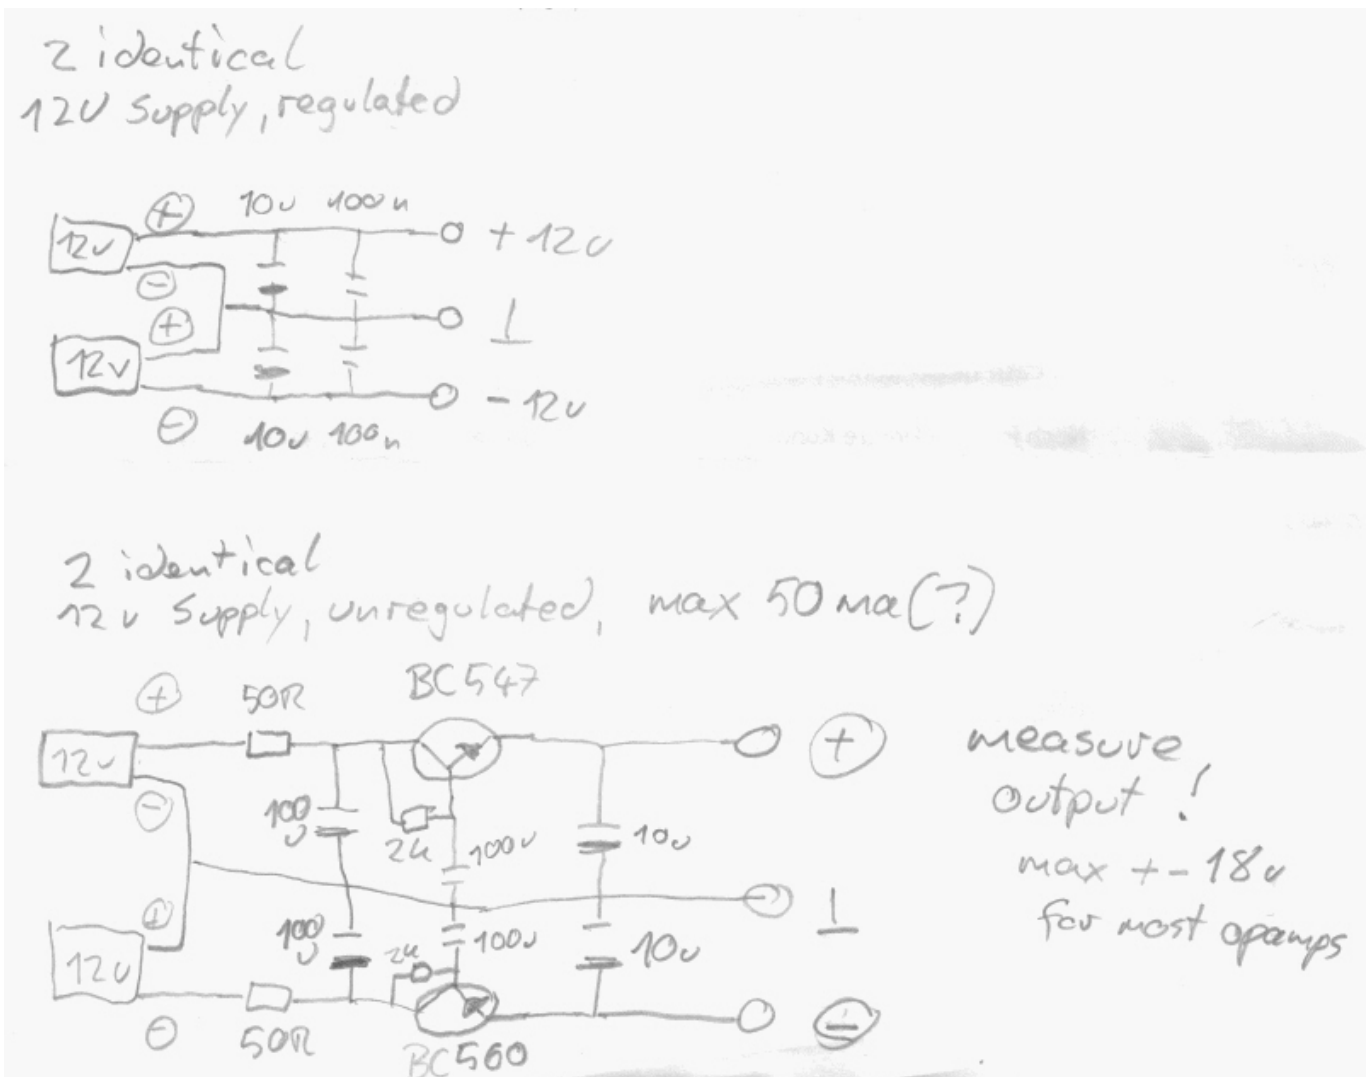 2 identical
12V supply, regulated
+ 10u 100n
12v + 12v
-
+ ⊥
12v
- 12v
- 10u 100n
2 identical
12v supply, unregulated, max 50ma(?)
BC547
+ 50R
12v + measure
output!
- 100u 2k 100u 10u
max +- 18v
+ ⊥ for most opamps
100u 2k 100u 10u
12v
- 50R -
BC560